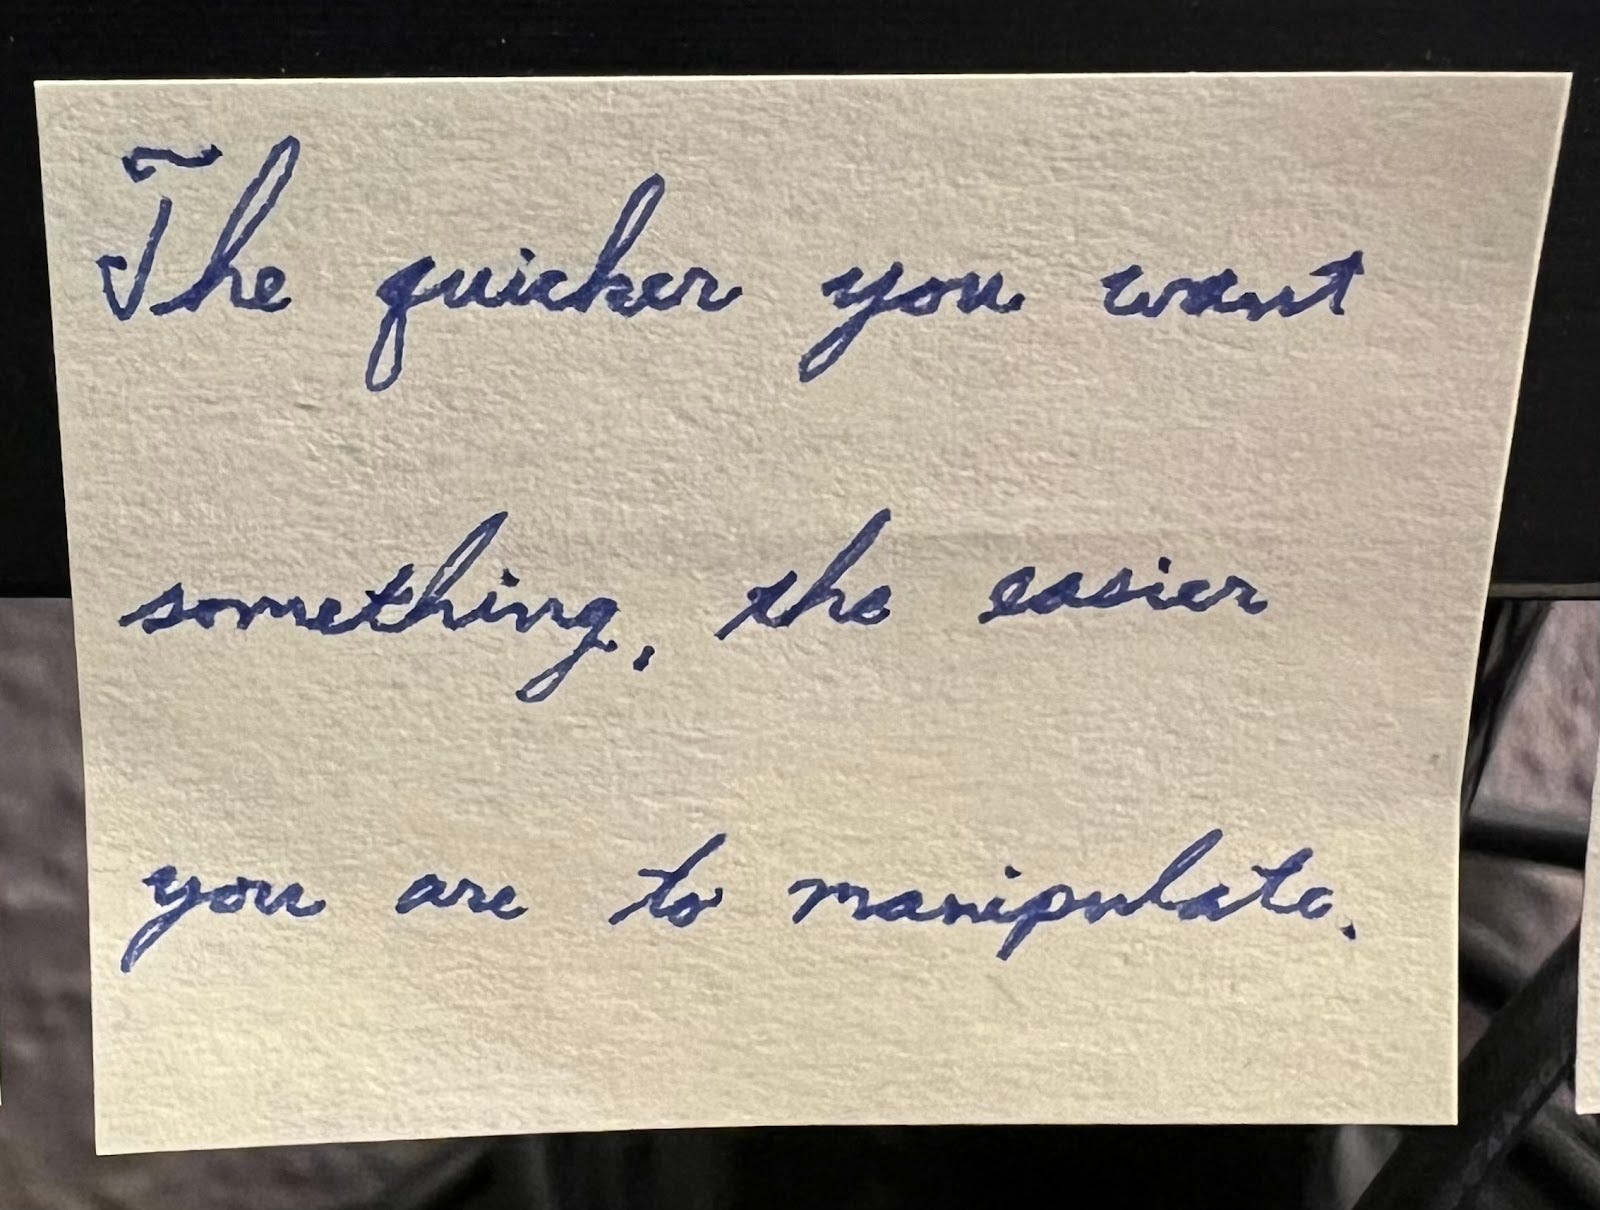 The quicker you want
something, the easier
you are to manipulate.